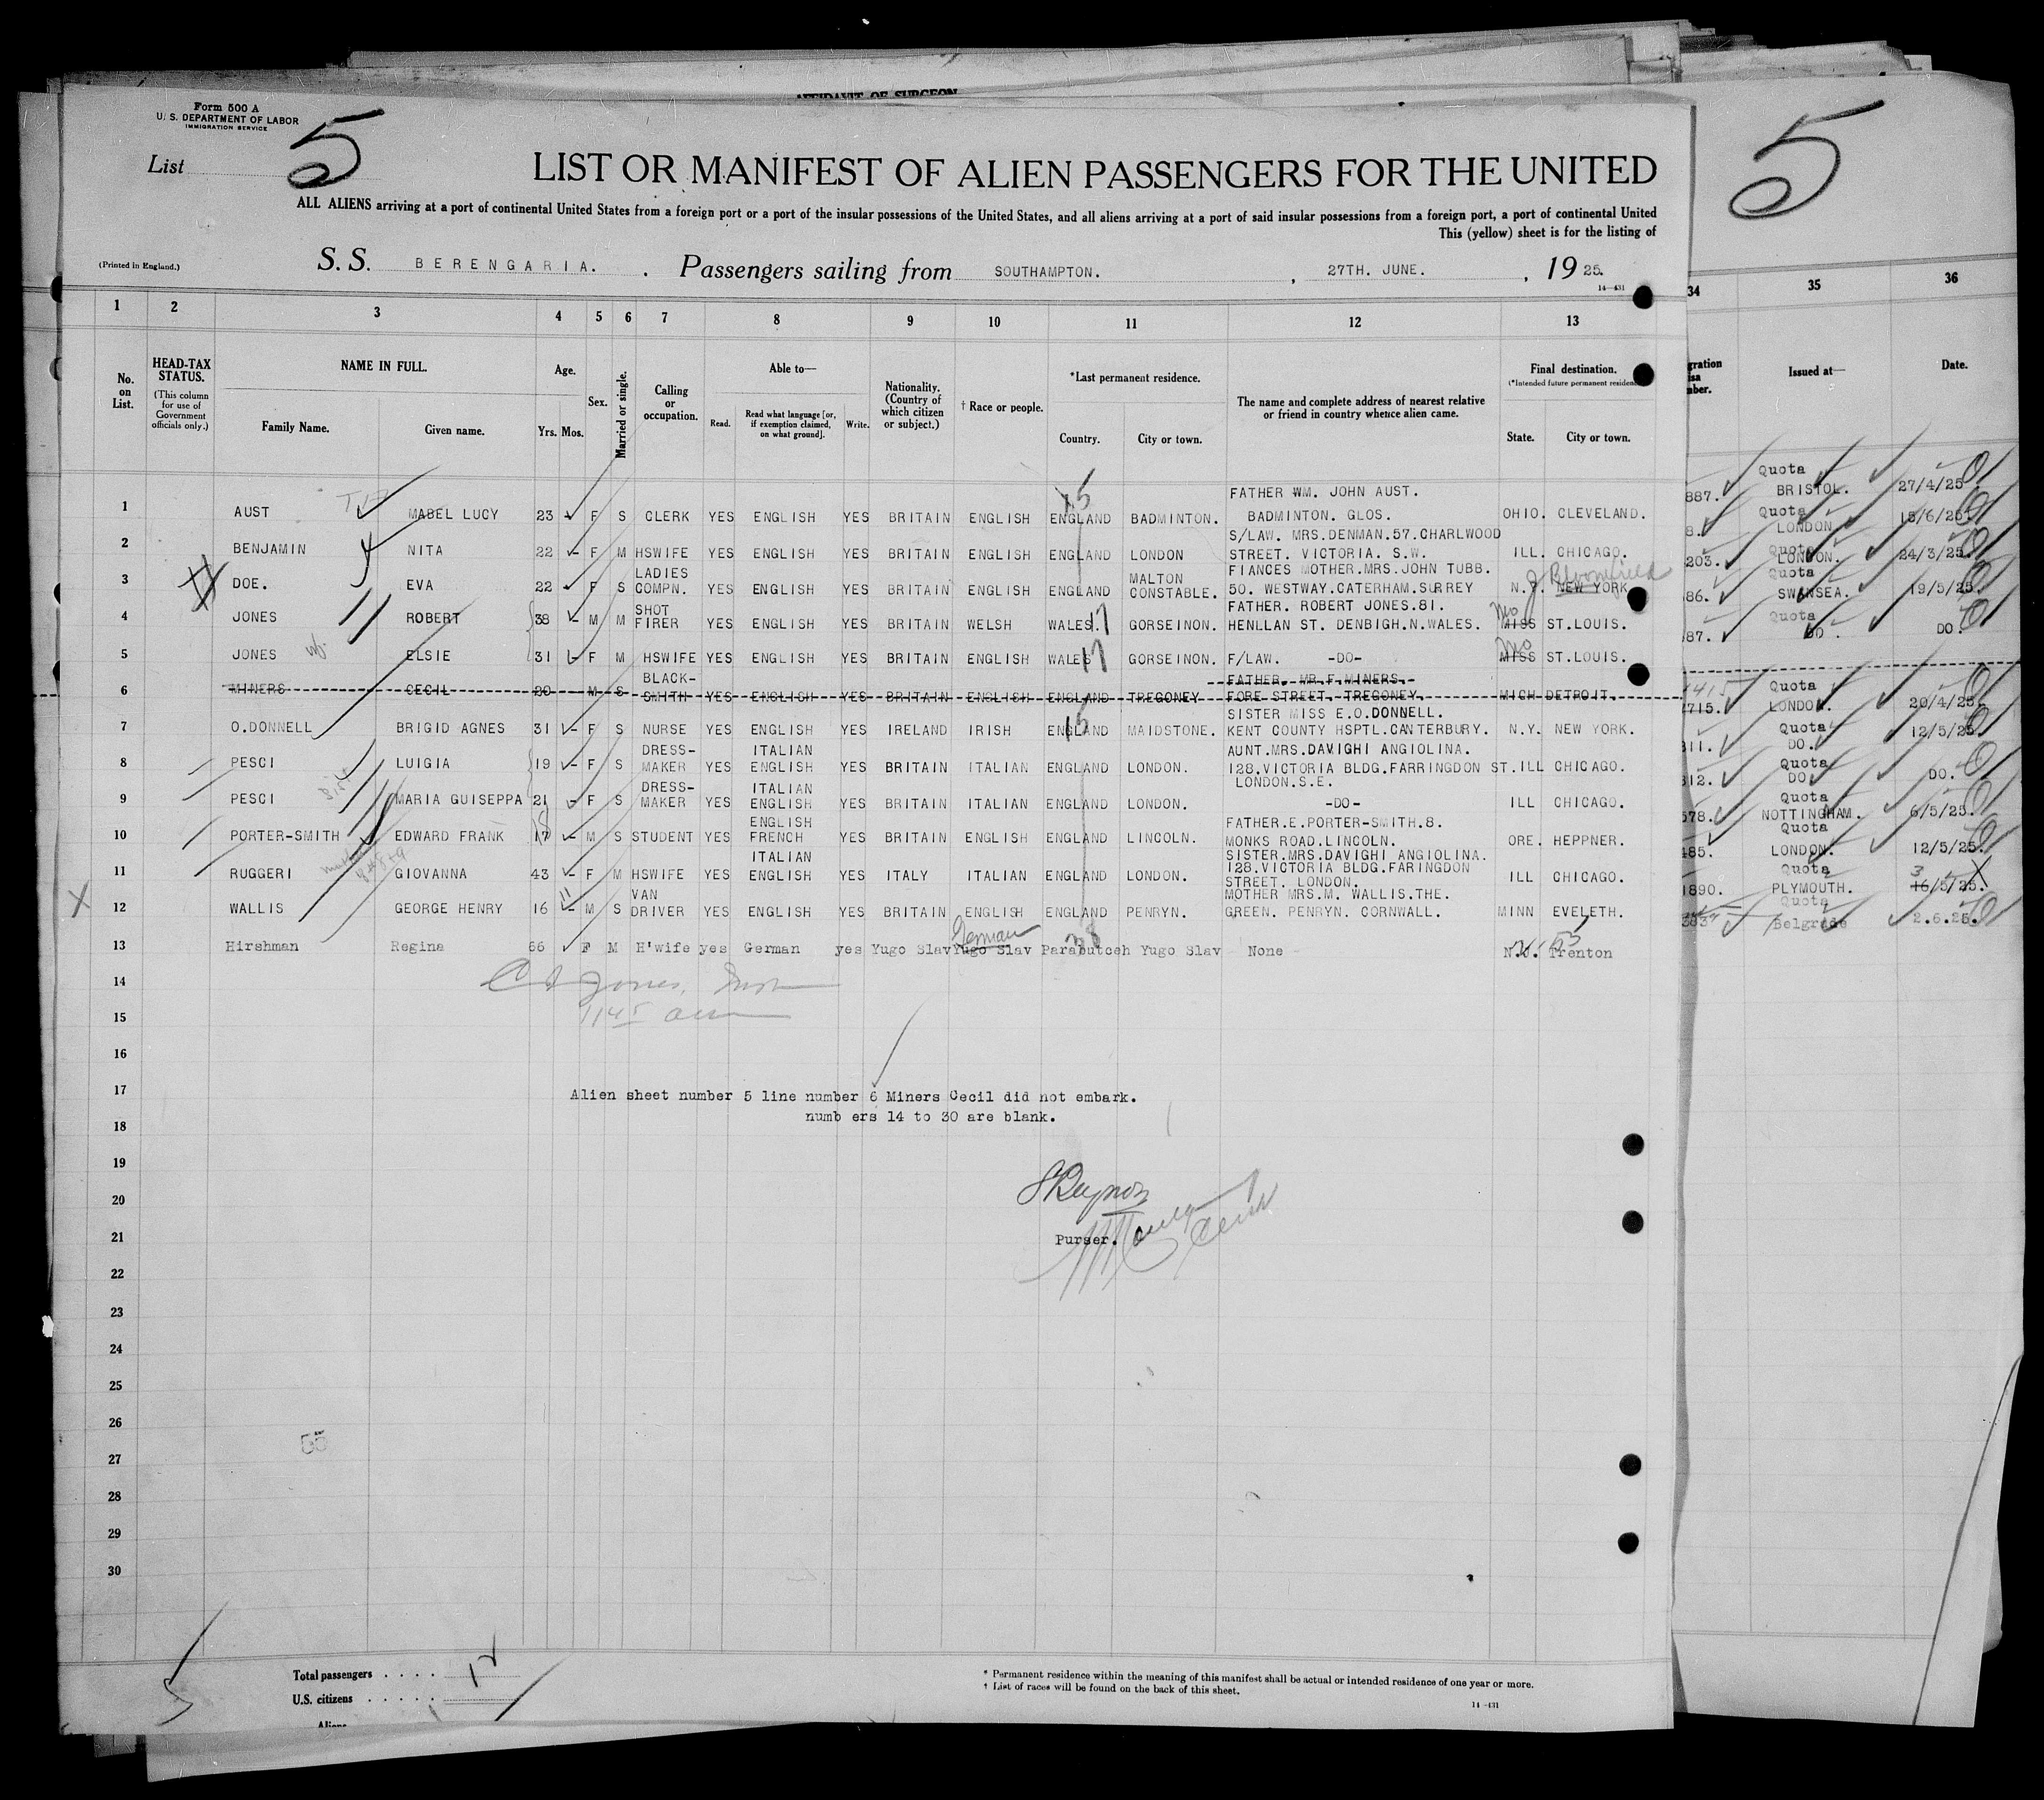 AFFIDAVIT OF SURGEON
Form 500 A
U. S. DEPARTMENT OF LABOR
IMMIGRATION SERVICE
List 5
5
LIST OR MANIFEST OF ALIEN PASSENGERS FOR THE UNITED
ALL ALIENS arriving at a port of continental United States from a foreign port or a port of the insular possessions of the United States, and all aliens arriving at a port of said insular possessions from a foreign port, a port of continental United
This (yellow) sheet is for the listing of
(Printed in England.)
S. S. BERENGARIA. . Passengers sailing from SOUTHAMPTON. , 27TH. JUNE. , 19 25.
14—431
1 2 3 4 5 6 7 8 9 10 11 12 13 34 35 36
No. on List.
HEAD-TAX STATUS.
(This column for use of Government officials only.)
NAME IN FULL.
Family Name. Given name.
Age.
Yrs. Mos.
Sex.
Married or single.
Calling or occupation.
Able to—
Read. Read what language [or, if exemption claimed, on what ground]. Write.
Nationality. (Country of which citizen or subject.)
† Race or people.
*Last permanent residence.
Country. City or town.
The name and complete address of nearest relative or friend in country whence alien came.
Final destination.
(*Intended future permanent residence
State. City or town.
Issued at—
Date.
1 AUST MABEL LUCY 23 F S CLERK YES ENGLISH YES BRITAIN ENGLISH ENGLAND BADMINTON. FATHER WM. JOHN AUST. BADMINTON. GLOS. OHIO. CLEVELAND. 887. Quota BRISTOL. 27/4/25
2 BENJAMIN NITA 22 F M HSWIFE YES ENGLISH YES BRITAIN ENGLISH ENGLAND LONDON S/LAW. MRS.DENMAN.57.CHARLWOOD STREET. VICTORIA. S.W. ILL. CHICAGO. 8. Quota LONDON 15/6/25
3 DOE. EVA 22 F S LADIES COMPN. YES ENGLISH YES BRITAIN ENGLISH ENGLAND MALTON CONSTABLE. FIANCES MOTHER.MRS.JOHN TUBB. 50. WESTWAY.CATERHAM.SURREY N.Y. NEW YORK Bloomfield 203. Quota LONDON. 24/3/25
4 JONES ROBERT 38 M M SHOT FIRER YES ENGLISH YES BRITAIN WELSH WALES. 17 GORSEINON. FATHER. ROBERT JONES.81. HENLLAN ST. DENBIGH.N.WALES. MISS Mo ST.LOUIS. 86. Quota SWANSEA. 19/5/25
5 JONES ELSIE 31 F M HSWIFE YES ENGLISH YES BRITAIN ENGLISH WALES 17 GORSEINON. F/LAW. -DO- MISS Mo ST.LOUIS. 87. Quota DO. DO.
6 MINERS CECIL 20 M S BLACK-SMITH YES ENGLISH YES BRITAIN ENGLISH ENGLAND TREGONEY FATHER. MR.F.MINERS. FORE STREET. TREGONEY. MICH DETROIT.
7 O.DONNELL BRIGID AGNES 31 F S NURSE YES ENGLISH YES IRELAND IRISH ENGLAND 15 MAIDSTONE. SISTER MISS E.O.DONNELL. KENT COUNTY HSPTL.CANTERBURY. N.Y. NEW YORK. 715. Quota LONDON. 20/4/25
8 PESCI LUIGIA 19 F S DRESS-MAKER YES ITALIAN ENGLISH YES BRITAIN ITALIAN ENGLAND LONDON. AUNT.MRS.DAVIGHI ANGIOLINA. 128.VICTORIA BLDG.FARRINGDON ST. LONDON.S.E. ILL CHICAGO. 311. Quota DO. 12/5/25
9 PESCI MARIA GUISEPPA 21 F S DRESS-MAKER YES ITALIAN ENGLISH YES BRITAIN ITALIAN ENGLAND LONDON. -DO- ILL CHICAGO. 312. Quota DO DO.
10 PORTER-SMITH EDWARD FRANK 17 M S STUDENT YES ENGLISH FRENCH YES BRITAIN ENGLISH ENGLAND LINCOLN. FATHER.E.PORTER-SMITH.8. MONKS ROAD.LINCOLN. ORE. HEPPNER. 578. Quota NOTTINGHAM. 6/5/25.
11 RUGGERI GIOVANNA 43 F M HSWIFE YES ITALIAN ENGLISH YES ITALY ITALIAN ENGLAND LONDON. SISTER.MRS.DAVIGHI ANGIOLINA. 128.VICTORIA BLDG.FARINGDON STREET. LONDON. ILL CHICAGO. 485. Quota LONDON. 12/5/25
12 WALLIS GEORGE HENRY 16 11 M S VAN DRIVER YES ENGLISH YES BRITAIN ENGLISH ENGLAND PENRYN. MOTHER MRS.M. WALLIS.THE. GREEN. PENRYN. CORNWALL. MINN EVELETH. 1890. Quota PLYMOUTH. 16/5/25.
13 Hirshman Regina 66 F M H'wife yes German yes Yugo Slav Yugo Slav German Parabutceh Yugo Slav None N.J. Trenton Quota Belgrade 2.6.25.
14
15
16
17
Alien sheet number 5 line number 6 Miners Cecil did not embark.
numb ers 14 to 30 are blank.
18
19
20
21
Purser.
22
23
24
25
26
27
55
28
29
30
Total passengers . . . . 12
U.S. citizens . . . . .
Aliens
* Permanent residence within the meaning of this manifest shall be actual or intended residence of one year or more.
† List of races will be found on the back of this sheet.
14—431